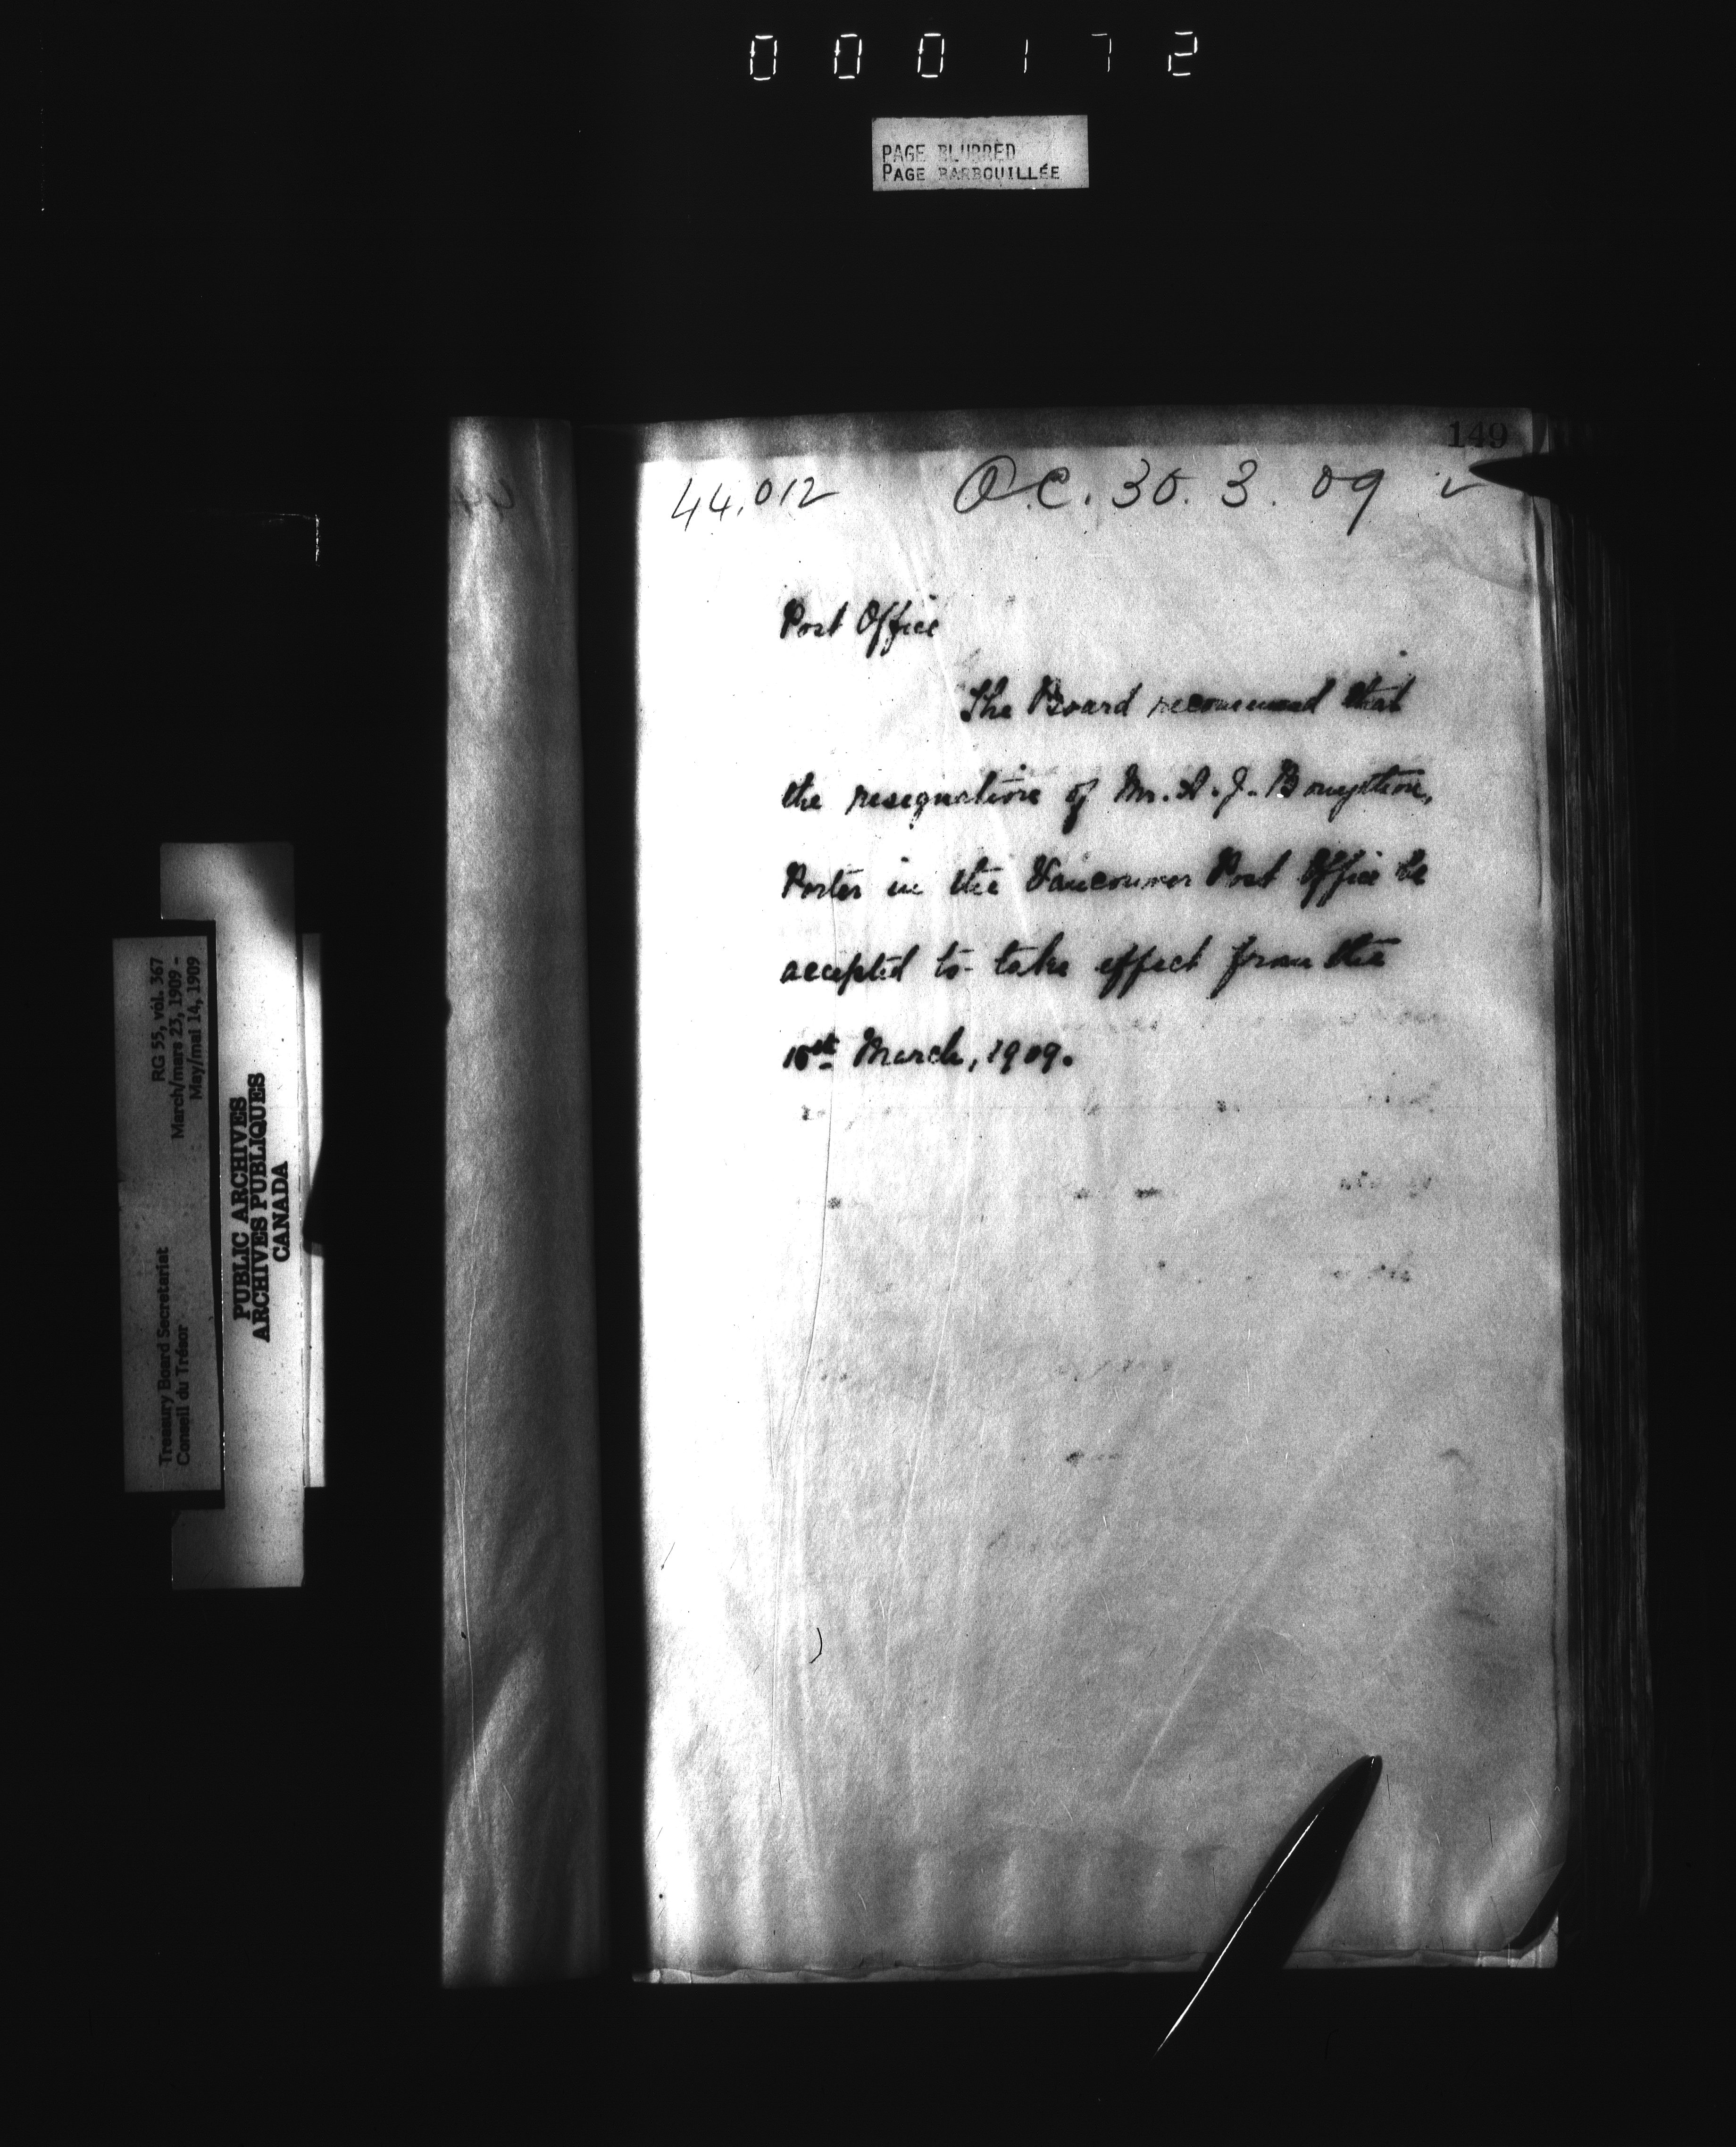 000172
PAGE BLURRED
PAGE BARBOUILLÉE
149
44,012 O.C. 30. 3. 09
Post Office
The Board recommend that
the resignation of Mr. A. J.
Porter in the Vancouver Post Office be
accepted to take effect from the
March, 1909.
RG 55, vol. 367
March/mars 23, 1909 -
May/mai 14, 1909
Treasury Board Secretariat
Conseil du Trésor
PUBLIC ARCHIVES
ARCHIVES PUBLIQUES
CANADA